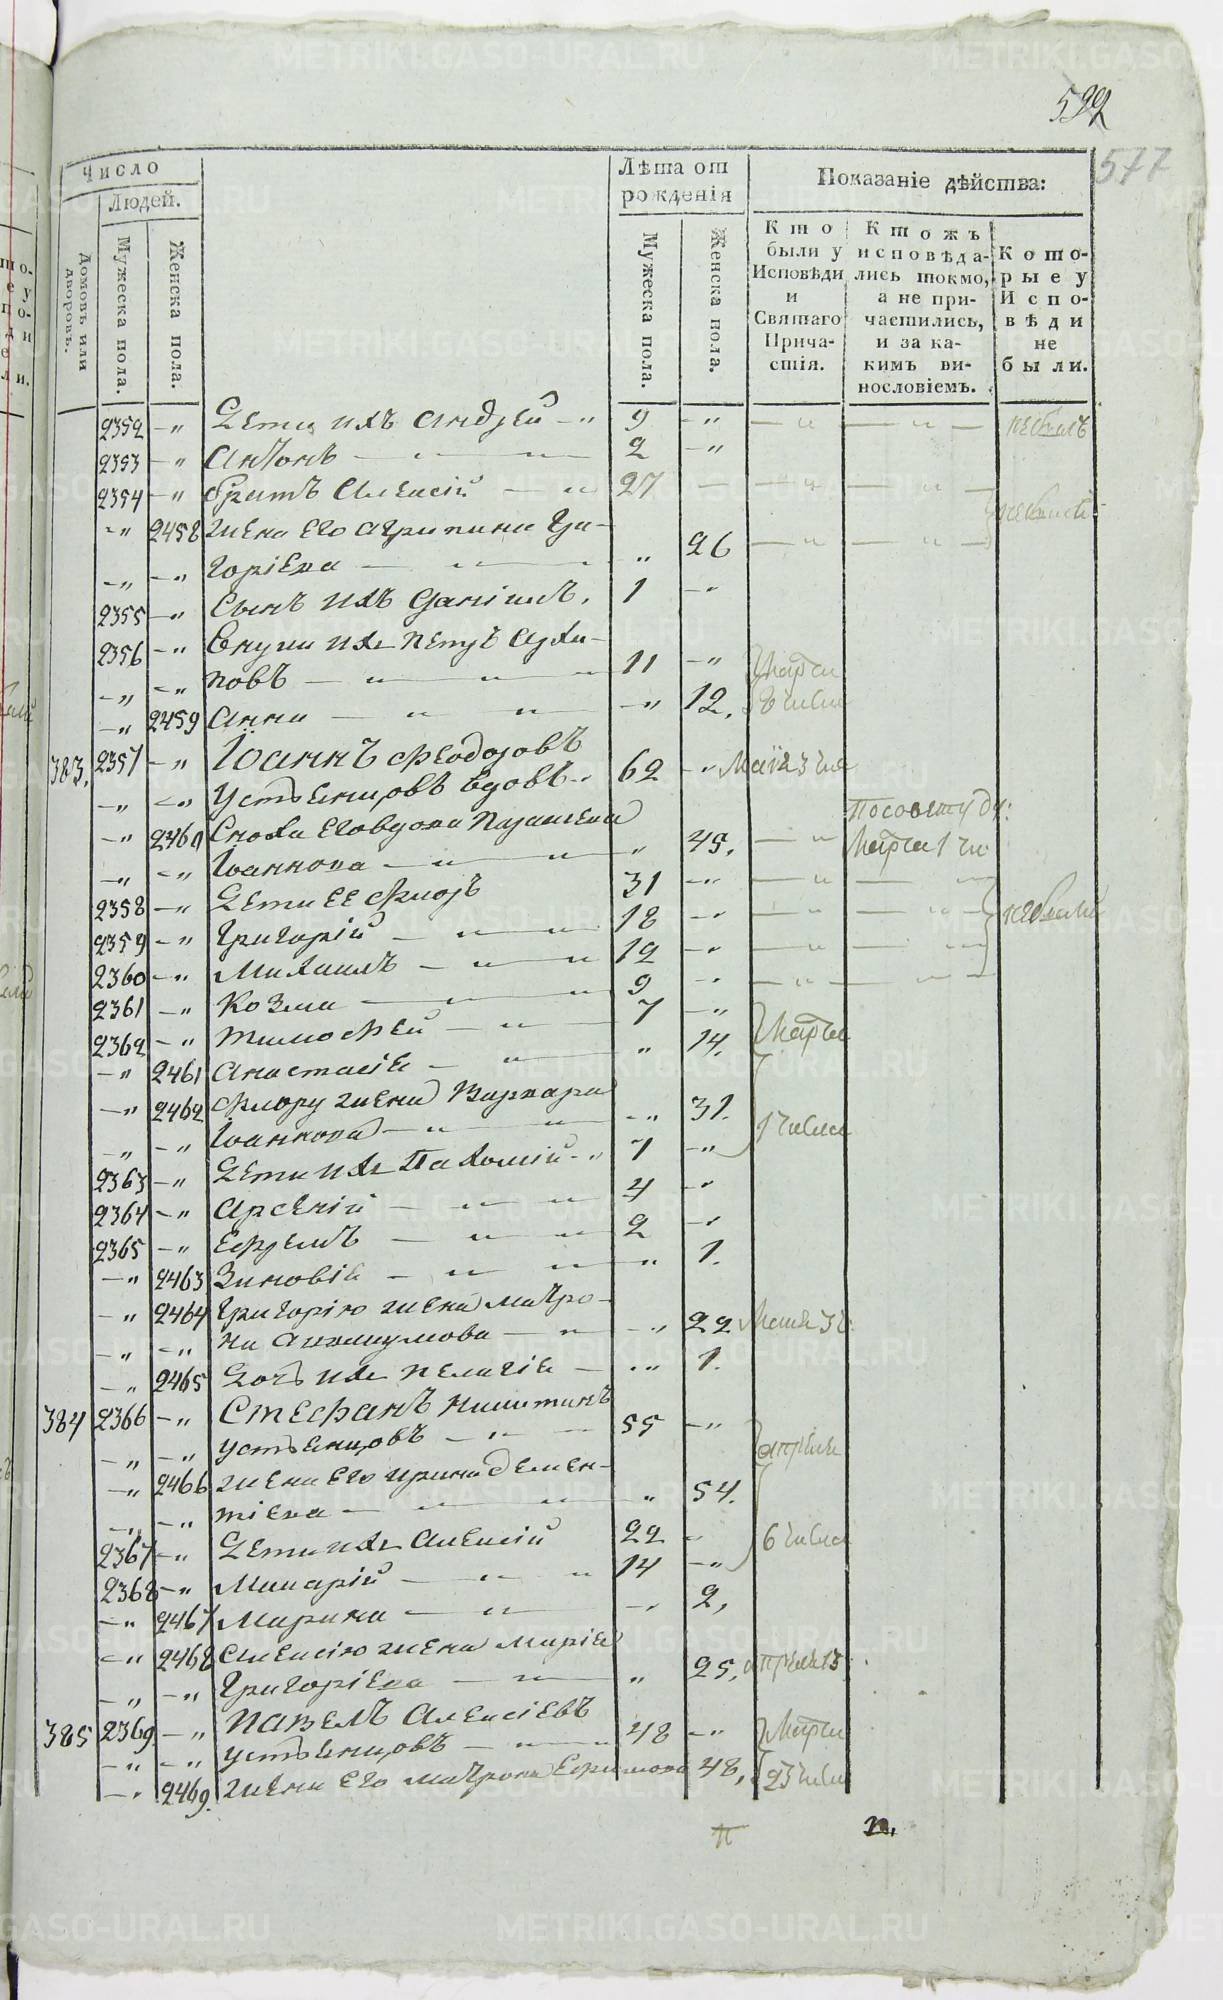 592
577
Число
Людей.
Домовъ или дворовъ.
Мужеска пола.
Женска пола.
Лѣта от рожденія
Мужеска пола.
Женска пола.
Показаніе дѣйства:
Кто были у Исповѣди и Святаго Причастія.
Ктожъ исповѣдались токмо, а не причастились, и за какимъ винословіемъ.
Которые у Исповѣди не были.
2352 -„ Дети ихъ Андрей -„ 9 -„ — „ — „ — небылъ
2353 -„ Антонъ — „ — 2 -„
2354 -„ братъ Алексій — „ 27 — — „ — „ —
-„ 2458 жена его Агрипина Гри- небыли
-„ -„ горіева — „ — „ 26 — „ — „ —
2355 -„ Сынъ ихъ Даніилъ. 1 -„
2356 -„ Внуки ихъ Петръ Архи-
-„ -„ повъ — „ — „ 11 -„ Марта
-„ 2459 Анна — „ — „ -„ 12. 8 числа
383. 2357 -„ Іоаннъ Феодоровъ
-„ -„ Устьянцовъ вдовъ.. 62 -„ Маія 3 чис
-„ 2460 Сноха его вдова Парасковія Посовету ду:
-„ -„ Іоаннова — „ — „ „ 45. — „ Марта 1 чи
2358 -„ Дети ее Флоръ 31 -„ — „ — „
2359 -„ Григорій — „ — „ 18 -„ — „ — „ небыли
2360 -„ Михаилъ — „ — „ 12 -„ — „ — „
2361 -„ Козма — „ 9 -„ — „ —
2362 -„ Тимофей — „ 7 -„ Марта
-„ 2461 Анастасія — „ „ 14.
-„ 2462 Флору жена Варвара
-„ -„ Іоаннова — „ — „ -„ 31. 1 числа
2363 -„ Дети ихъ Пахомій -„ 7 -„
2364 -„ Арсеній — „ — „ 4 -„
2365 -„ Ефремъ — „ — „ 2 -„
-„ 2463 Зиновія — „ — „ „ 1.
-„ 2464 Григорію жена Матро-
-„ -„ на — „ -„ 22 Маія 3 ч.
-„ 2465 Дочь ихъ Пелагія — -„ 1.
384 2366 -„ Стефанъ Никитинъ
-„ -„ Устьянцовъ — „ — 55 -„ апреля
-„ 2466 жена его Ирина Демен-
-„ -„ тіева — „ — „ „ 54.
2367 -„ Дети ихъ Алексій 22 -„ 6 числа
2368 -„ Макарій — „ „ 14 -„
-„ 2467 Марина — „ — -„ 2,
-„ 2468 Алексію жена Марія
-„ -„ Григоріева — „ — „ 25. апреля 13
385 2369 -„ Павелъ Алексіевъ
-„ -„ Устьянцовъ — „ — 48 -„ Марта
-„ 2469. жена его Матрона Ефимова 48, 23 числа